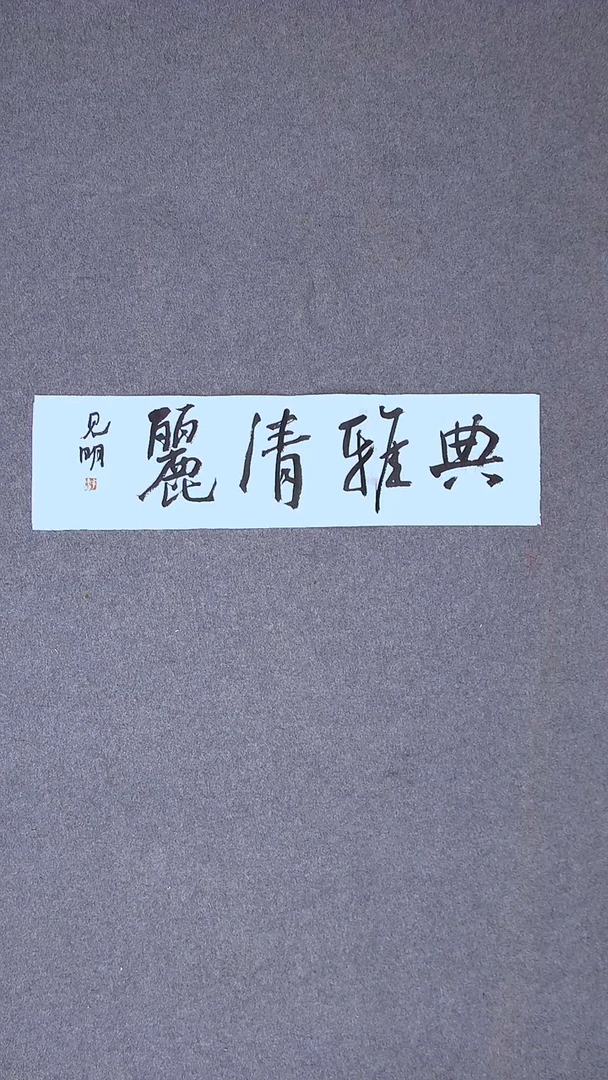 典雅清麗
見明